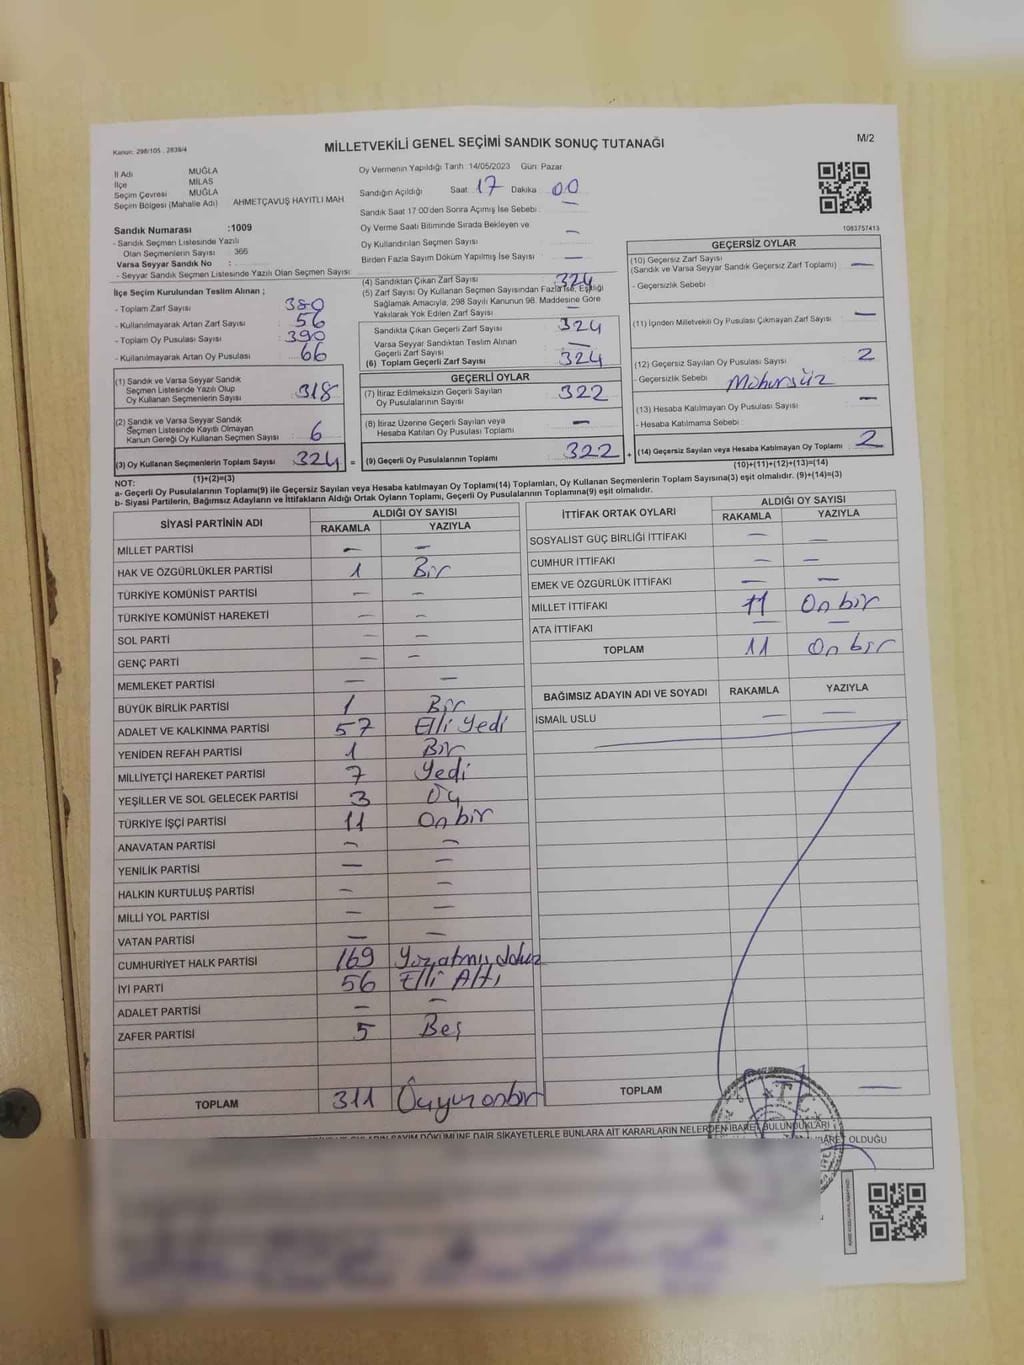 Kanun: 298/105 , 2839/4
MİLLETVEKİLİ GENEL SEÇİMİ SANDIK SONUÇ TUTANAĞI
M/2
İl Adı MUĞLA
İlçe MİLAS
Seçim Çevresi MUĞLA
Seçim Bölgesi (Mahalle Adı) AHMETÇAVUŞ HAYITLI MAH.
Oy Vermenin Yapıldığı Tarih :14/05/2023 Gün: Pazar
Sandığın Açıldığı Saat : 17 Dakika : 00
Sandık Saat 17:00'den Sonra Açımış İse Sebebi : —
Oy Verme Saati Bitiminde Sırada Bekleyen ve
Oy Kullandırılan Seçmen Sayısı —
Birden Fazla Sayım Döküm Yapılmış İse Sayısı : —
1083757413
Sandık Numarası :1009
- Sandık Seçmen Listesinde Yazılı
Olan Seçmenlerin Sayısı : 366
Varsa Seyyar Sandık No :
- Seyyar Sandık Seçmen Listesinde Yazılı Olan Seçmen Sayısı
İlçe Seçim Kurulundan Teslim Alınan ;
- Toplam Zarf Sayısı : 380
- Kullanılmayarak Artan Zarf Sayısı : 56
- Toplam Oy Pusulası Sayısı : 390
- Kullanılmayarak Artan Oy Pusulası : 66
(1) Sandık ve Varsa Seyyar Sandık
Seçmen Listesinde Yazılı Olup
Oy Kullanan Seçmenlerin Sayısı : 318
(2) Sandık ve Varsa Seyyar Sandık
Seçmen Listesinde Kayıtlı Olmayan
Kanun Gereği Oy Kullanan Seçmen Sayısı : 6
(3) Oy Kullanan Seçmenlerin Toplam Sayısı 324 =
(1)+(2)=(3)
(4) Sandıktan Çıkan Zarf Sayısı : 324
(5) Zarf Sayısı Oy Kullanan Seçmen Sayısından Fazla ise, Eşitliği
Sağlamak Amacıyla, 298 Sayılı Kanunun 98. Maddesine Göre
Yakılarak Yok Edilen Zarf Sayısı : —
Sandıkta Çıkan Geçerli Zarf Sayısı : 324
Varsa Seyyar Sandıktan Teslim Alınan
Geçerli Zarf Sayısı : —
(6) Toplam Geçerli Zarf Sayısı : 324
GEÇERLİ OYLAR
(7) İtiraz Edilmeksizin Geçerli Sayılan
Oy Pusulalarının Sayısı : 322
(8) İtiraz Üzerine Geçerli Sayılan veya
Hesaba Katılan Oy Pusulası Toplamı : —
(9) Geçerli Oy Pusulalarının Toplamı : 322 +
GEÇERSİZ OYLAR
(10) Geçersiz Zarf Sayısı
(Sandık ve Varsa Seyyar Sandık Geçersiz Zarf Toplamı) : —
- Geçersizlik Sebebi :
(11) İçinden Milletvekili Oy Pusulası Çıkmayan Zarf Sayısı : —
(12) Geçersiz Sayılan Oy Pusulası Sayısı : 2
- Geçersizlik Sebebi : Mühürsüz
(13) Hesaba Katılmayan Oy Pusulası Sayısı : —
- Hesaba Katılmama Sebebi :
(14) Geçersiz Sayılan veya Hesaba Katılmayan Oy Toplamı : 2
(10)+(11)+(12)+(13)=(14)
NOT:
a- Geçerli Oy Pusulalarının Toplamı(9) ile Geçersiz Sayılan veya Hesaba Katılmayan Oy Toplamı(14) Toplamları, Oy Kullanan Seçmenlerin Toplam Sayısına(3) eşit olmalıdır. (9)+(14)=(3)
b- Siyasi Partilerin, Bağımsız Adayların ve İttifakların Aldığı Ortak Oyların Toplamı, Geçerli Oy Pusulalarının Toplamına(9) eşit olmalıdır.
SİYASİ PARTİNİN ADI ALDIĞI OY SAYISI
RAKAMLA YAZIYLA
MİLLET PARTİSİ — —
HAK VE ÖZGÜRLÜKLER PARTİSİ 1 Bir
TÜRKİYE KOMÜNİST PARTİSİ — —
TÜRKİYE KOMÜNİST HAREKETİ — —
SOL PARTİ — —
GENÇ PARTİ — —
MEMLEKET PARTİSİ — —
BÜYÜK BİRLİK PARTİSİ 1 Bir
ADALET VE KALKINMA PARTİSİ 57 Elli Yedi
YENİDEN REFAH PARTİSİ 1 Bir
MİLLİYETÇİ HAREKET PARTİSİ 7 Yedi
YEŞİLLER VE SOL GELECEK PARTİSİ 3 Üç
TÜRKİYE İŞÇİ PARTİSİ 11 On bir
ANAVATAN PARTİSİ — —
YENİLİK PARTİSİ — —
HALKIN KURTULUŞ PARTİSİ — —
MİLLİ YOL PARTİSİ — —
VATAN PARTİSİ — —
CUMHURİYET HALK PARTİSİ 169 Yüzatmışdokuz
İYİ PARTİ 56 Elli Altı
ADALET PARTİSİ — —
ZAFER PARTİSİ 5 Beş
TOPLAM 311 Üçyüzonbir
İTTİFAK ORTAK OYLARI ALDIĞI OY SAYISI
RAKAMLA YAZIYLA
SOSYALİST GÜÇ BİRLİĞİ İTTİFAKI — —
CUMHUR İTTİFAKI — —
EMEK VE ÖZGÜRLÜK İTTİFAKI — —
MİLLET İTTİFAKI 11 On bir
ATA İTTİFAKI — —
TOPLAM 11 On bir
BAĞIMSIZ ADAYIN ADI VE SOYADI RAKAMLA YAZIYLA
İSMAİL USLU — —
TOPLAM —
SAYIM DÖKÜMÜNE DAİR ŞİKAYETLERLE BUNLARA AİT KARARLARIN NELERDEN İBARET BULUNDUKLARI
İBARET OLDUĞU
T.C.